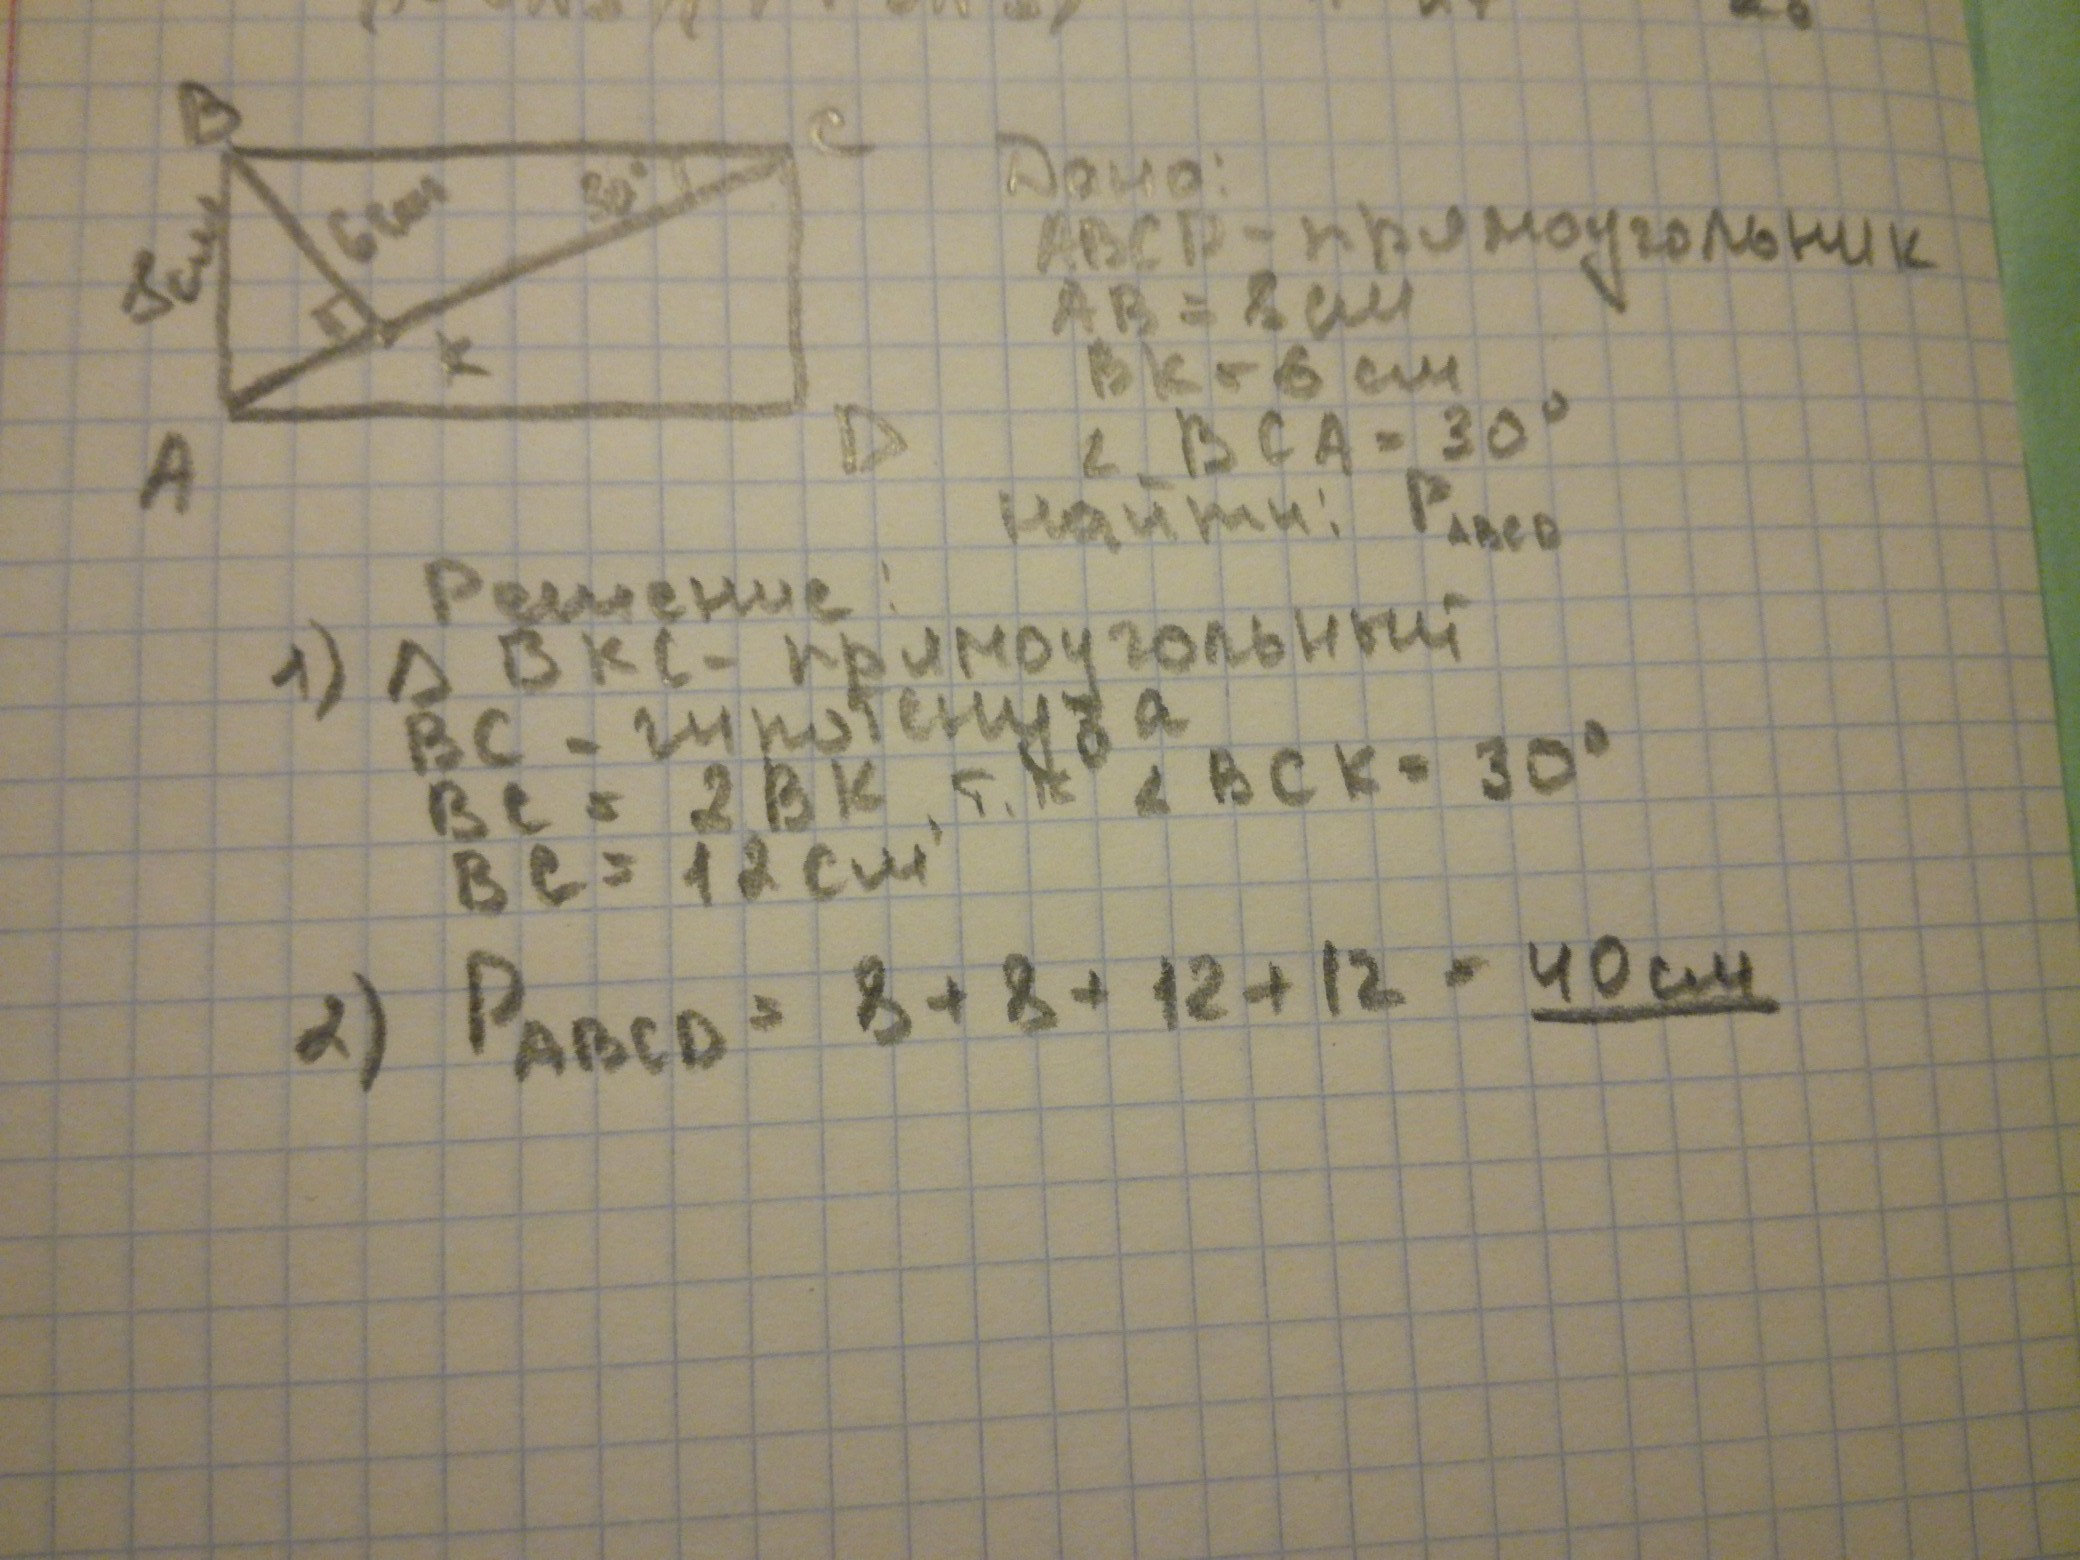 B
C
8см
6см
30°
K
A
D
Дано:
ABCD - прямоугольник
AB = 8 см
BK = 6 см
∠ BCA = 30°
Найти: P ABCD
Решение:
1) Δ BKC - прямоугольный
BC - гипотенуза
BC = 2 BK, т.к ∠ BCK = 30°
BC = 12 см
2) P ABCD = 8 + 8 + 12 + 12 = 40 см